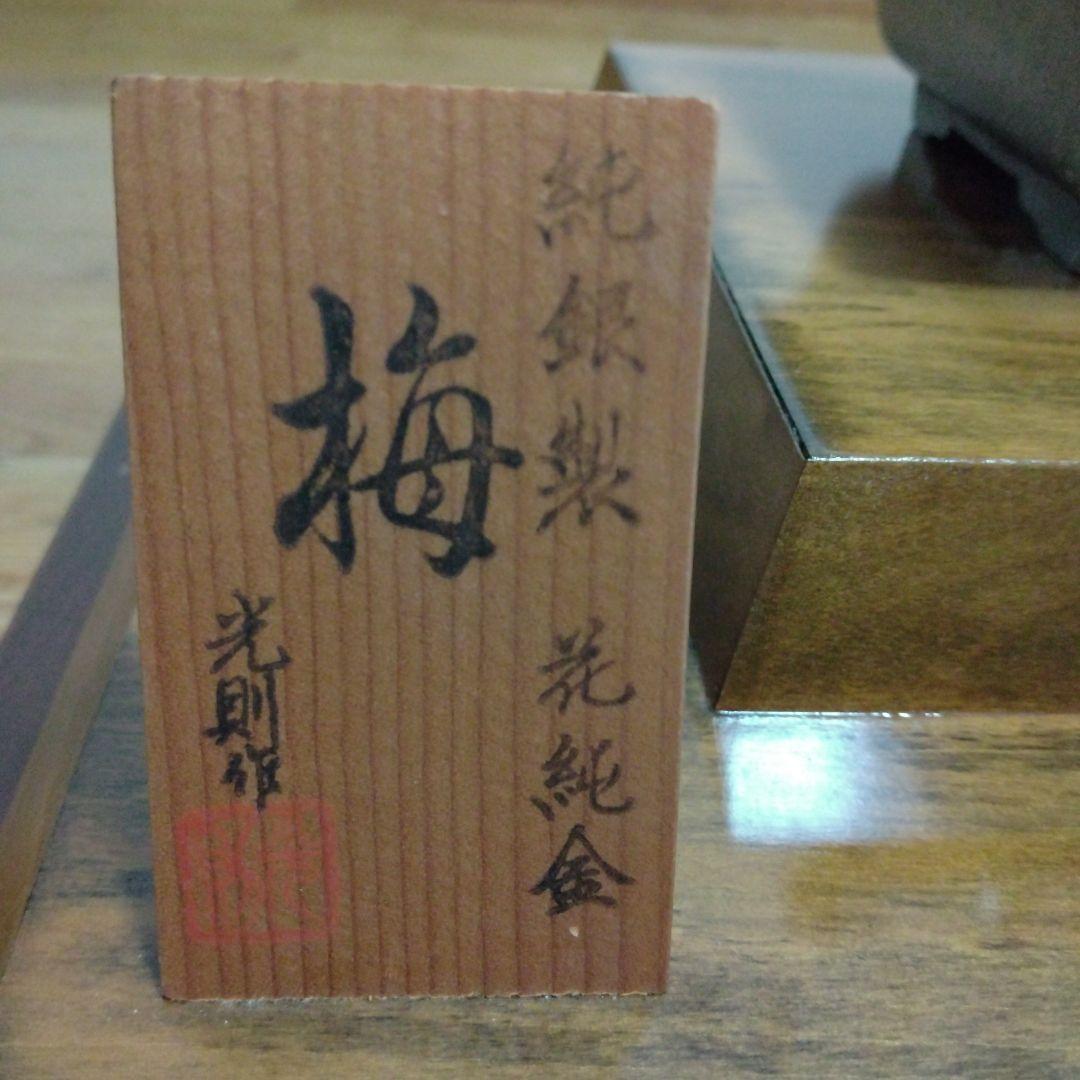 純銀製 花純金
梅
光則作